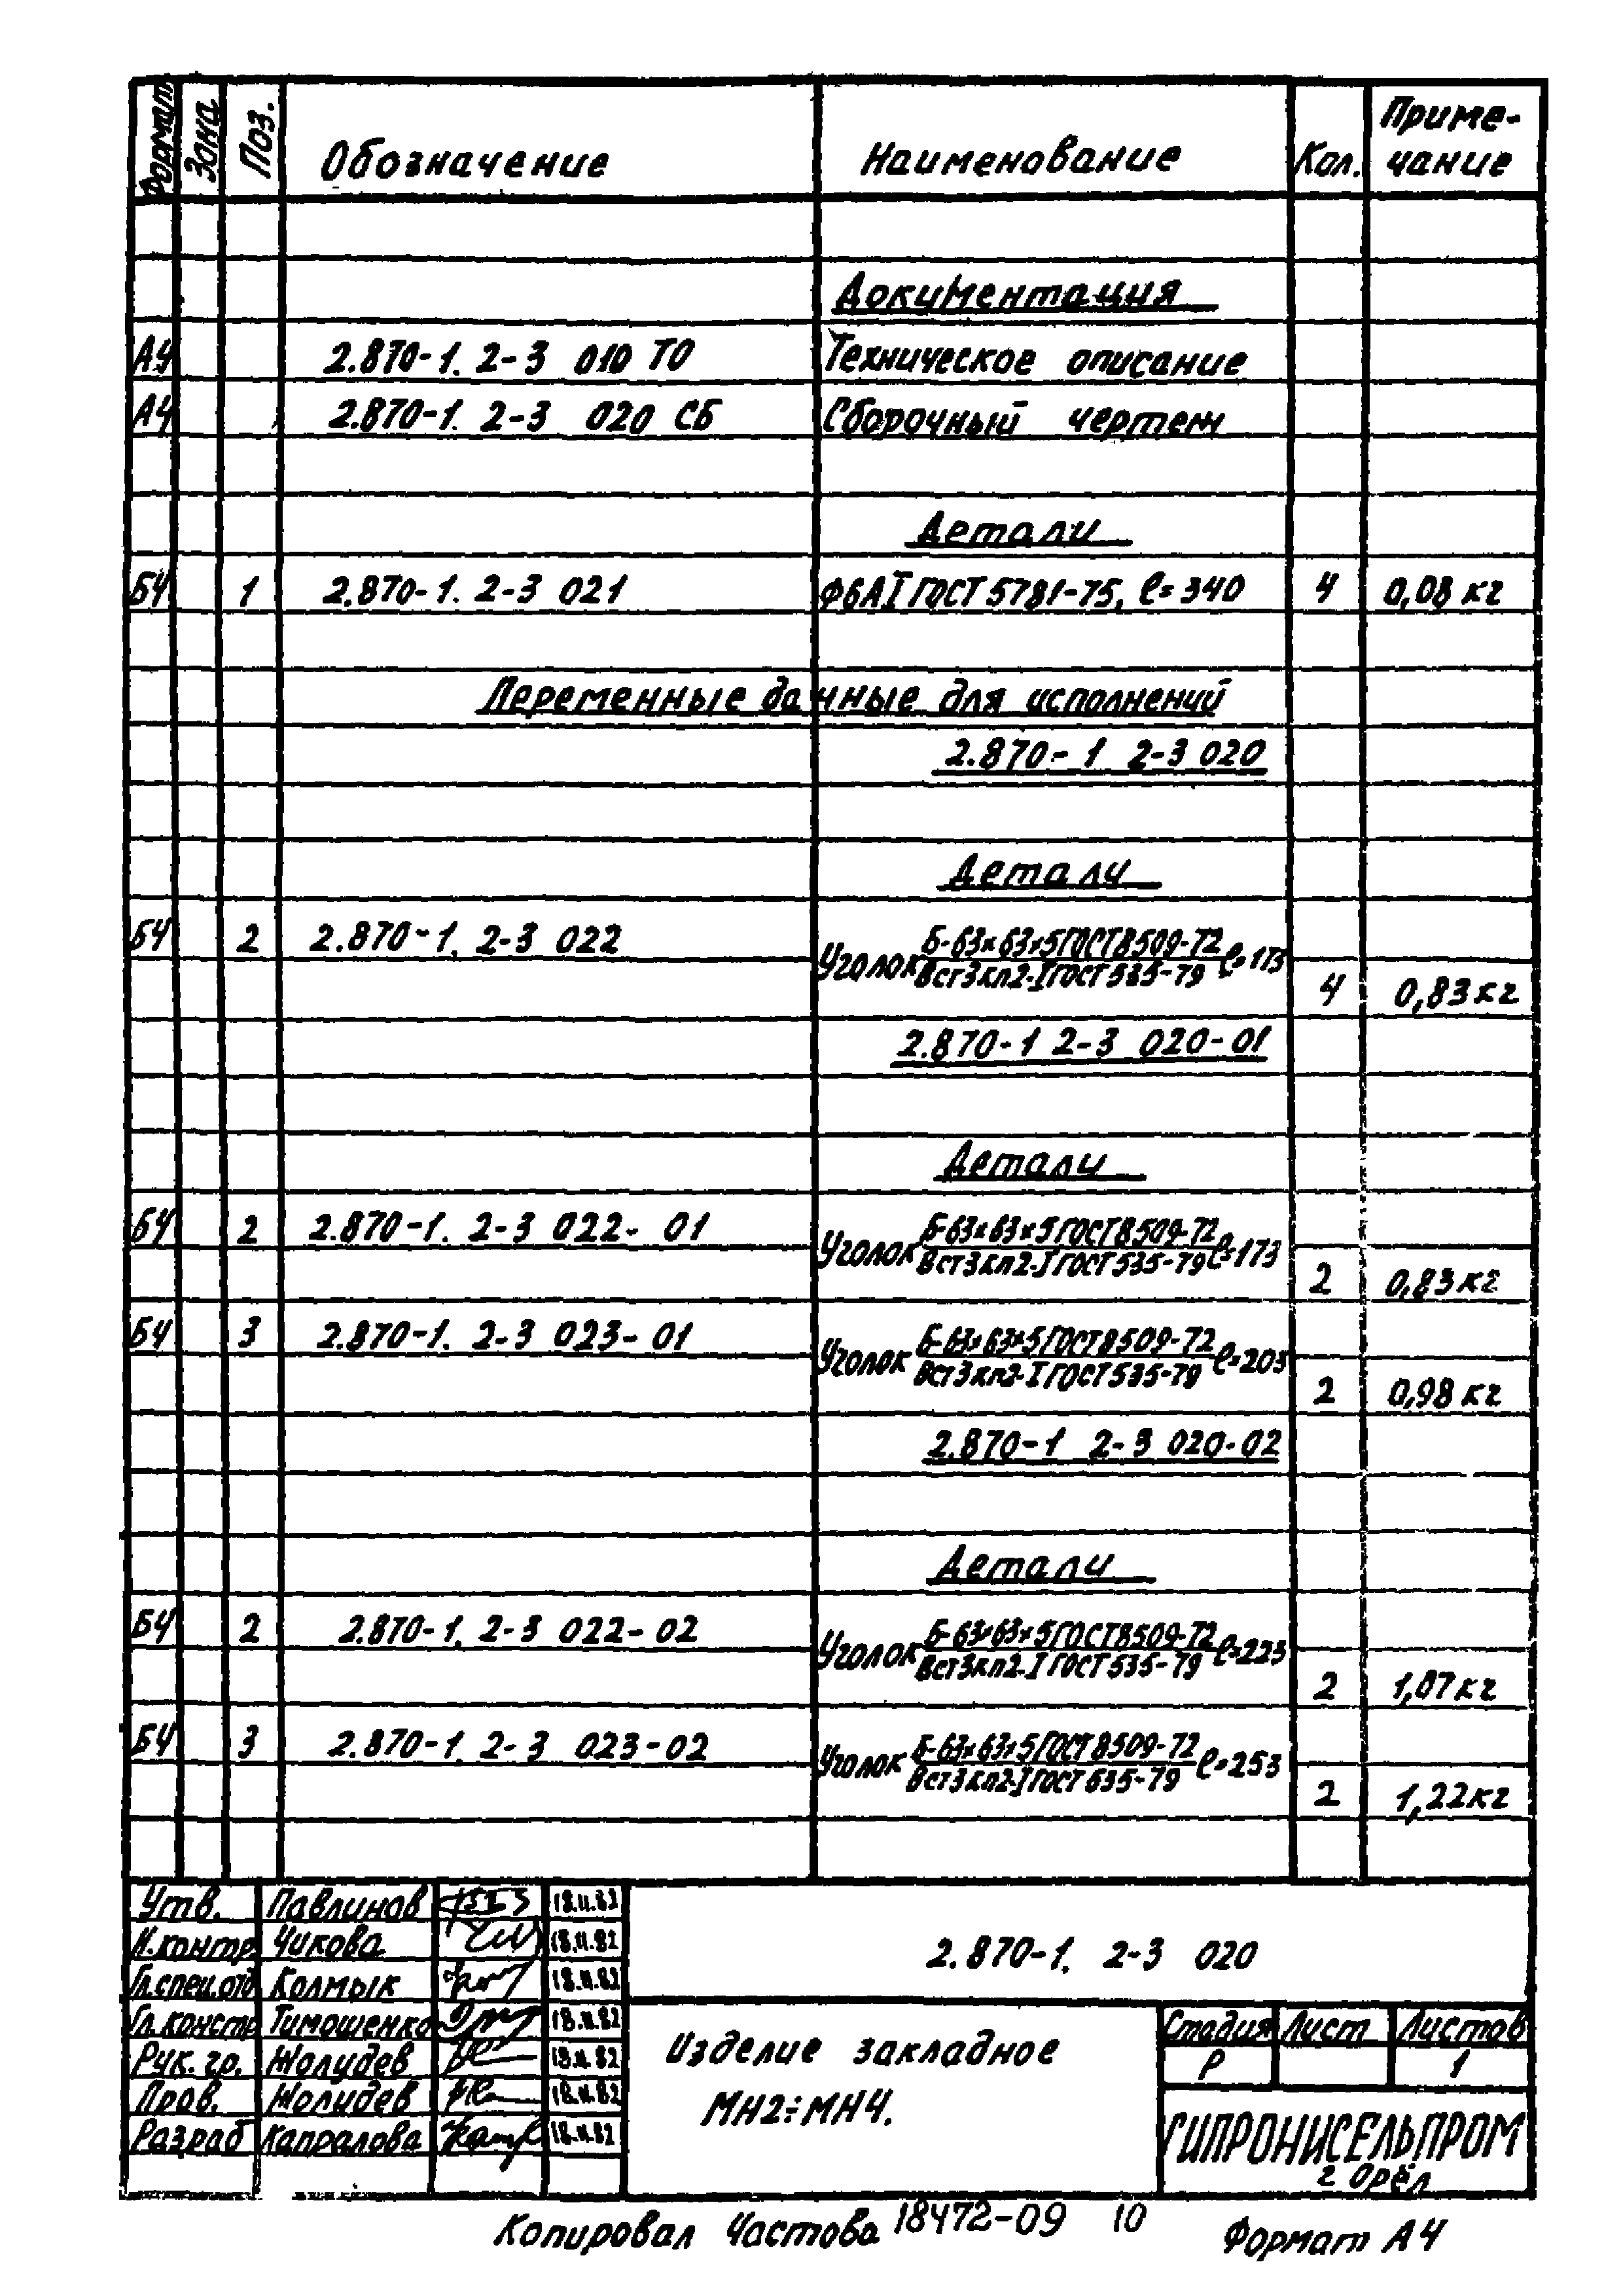 Формат Зона Поз. Обозначение Наименование Кол. Приме-
чание
Документация
А4 2.870-1. 2-3 010 ТО Техническое описание
А4 2.870-1. 2-3 020 СБ Сборочный чертеж
Детали
БЧ 1 2.870-1. 2-3 021 Ф6АI ГОСТ 5781-75, ℓ=340 4 0,08 кг
Переменные данные для исполнений
2.870-1 2-3 020
Детали
БЧ 2 2.870-1. 2-3 022 Уголок Б-63×63×5 ГОСТ 8509-72
Вст3кп2-I ГОСТ 535-79 ℓ=173 4 0,83 кг
2.870-1 2-3 020-01
Детали
БЧ 2 2.870-1. 2-3 022-01 Уголок Б-63×63×5 ГОСТ 8509-72
Вст3кп2-I ГОСТ 535-79 ℓ=173 2 0,83 кг
БЧ 3 2.870-1. 2-3 023-01 Уголок Б-63×63×5 ГОСТ 8509-72
Вст3кп2-I ГОСТ 535-79 ℓ=203 2 0,98 кг
2.870-1 2-3 020-02
Детали
БЧ 2 2.870-1. 2-3 022-02 Уголок Б-63×63×5 ГОСТ 8509-72
Вст3кп2-I ГОСТ 535-79 ℓ=223 2 1,07 кг
БЧ 3 2.870-1. 2-3 023-02 Уголок Б-63×63×5 ГОСТ 8509-72
Вст3кп2-I ГОСТ 535-79 ℓ=253 2 1,22 кг
Утв. Павлинов 18.11.82
Н.контр. Чикова 18.11.82
Гл.спец.отд Колмык 18.11.82
Гл. констр. Тимошенко 18.11.82
Рук. гр. Жолудев 18.11.82
Пров. Жолудев 18.11.82
Разраб Капралова 18.11.82
2.870-1. 2-3 020
Изделие закладное
МН2÷МН4.
Стадия Лист Листов
Р 1
ГИПРОНИСЕЛЬПРОМ
г Орёл
Копировал Частова 18472-09 10 Формат А4